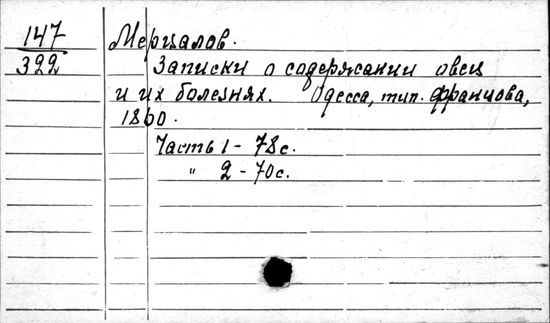 147
322
Мерцалов.
Записки о содержании овец
и их болезнях. Одесса, тип. Францова,
1860.
Часть 1 - 78 с.
" 2 - 70 с.